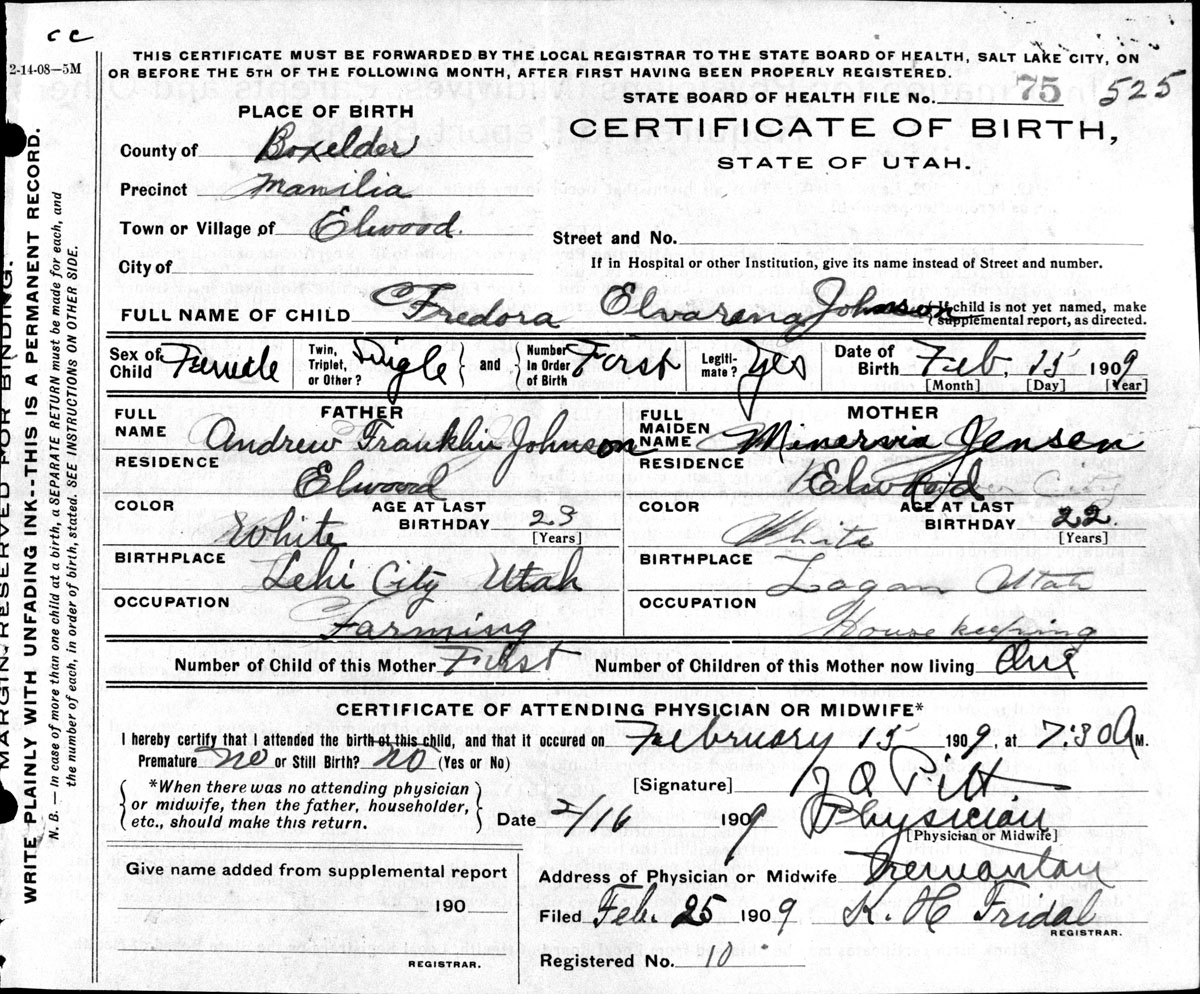 c c
2-14-08—5M
THIS CERTIFICATE MUST BE FORWARDED BY THE LOCAL REGISTRAR TO THE STATE BOARD OF HEALTH, SALT LAKE CITY, ON
OR BEFORE THE 5TH OF THE FOLLOWING MONTH, AFTER FIRST HAVING BEEN PROPERLY REGISTERED.
STATE BOARD OF HEALTH FILE No. 75 525
PLACE OF BIRTH
CERTIFICATE OF BIRTH,
STATE OF UTAH.
County of Boxelder
Precinct Manilia
Town or Village of Elwood.
Street and No.
City of
If in Hospital or other Institution, give its name instead of Street and number.
FULL NAME OF CHILD Fredora Elvarena Johnson
If child is not yet named, make
supplemental report, as directed.
Sex of Child Female
Twin, Triplet, or Other? Single and Number in Order of Birth First
Legiti-mate? Yes
Date of Birth Feb, 15 1909
[Month] [Day] [Year]
FATHER
FULL NAME Andrew Franklin Johnson
RESIDENCE Elwood
COLOR White
AGE AT LAST BIRTHDAY 23
[Years]
BIRTHPLACE Lehi City Utah
OCCUPATION Farming
MOTHER
FULL MAIDEN NAME Minervia Jensen
RESIDENCE Elwood
COLOR White
AGE AT LAST BIRTHDAY 22.
[Years]
BIRTHPLACE Logan Utah
OCCUPATION House keeping
Number of Child of this Mother First Number of Children of this Mother now living One
CERTIFICATE OF ATTENDING PHYSICIAN OR MIDWIFE*
I hereby certify that I attended the birth of this child, and that it occured on February 15 1909, at 7:30 A M.
Premature no or Still Birth? no (Yes or No)
*When there was no attending physician
or midwife, then the father, householder,
etc., should make this return.
[Signature] Pitt
Date 2/16 1909 Physician
[Physician or Midwife]
Give name added from supplemental report
190
REGISTRAR.
Address of Physician or Midwife Tremonton
Filed Feb. 25 1909 K. H. Fridal
REGISTRAR.
Registered No. 10
MARGIN RESERVED FOR BINDING.
WRITE PLAINLY WITH UNFADING INK--THIS IS A PERMANENT RECORD.
N. B. — In case of more than one child at a birth, a SEPARATE RETURN must be made for each, and
the number of each, in order of birth, stated. SEE INSTRUCTIONS ON OTHER SIDE.